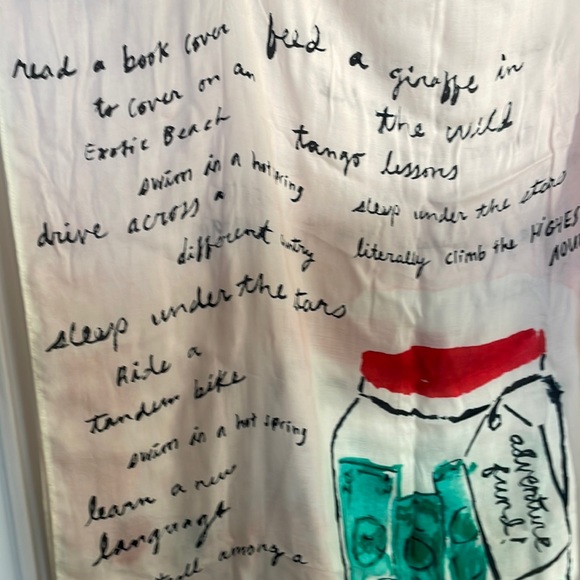 read a book cover
to cover on an
Exotic Beach
swim in a hot spring
drive across a
different
sleep under the stars
Ride a
tandem bike
swim in a hot spring
learn a new
language
tall among a
feed a
giraffe in
the wild
tango lessons
sleep under the stars
literally climb the HIGHEST
adventure
fund!